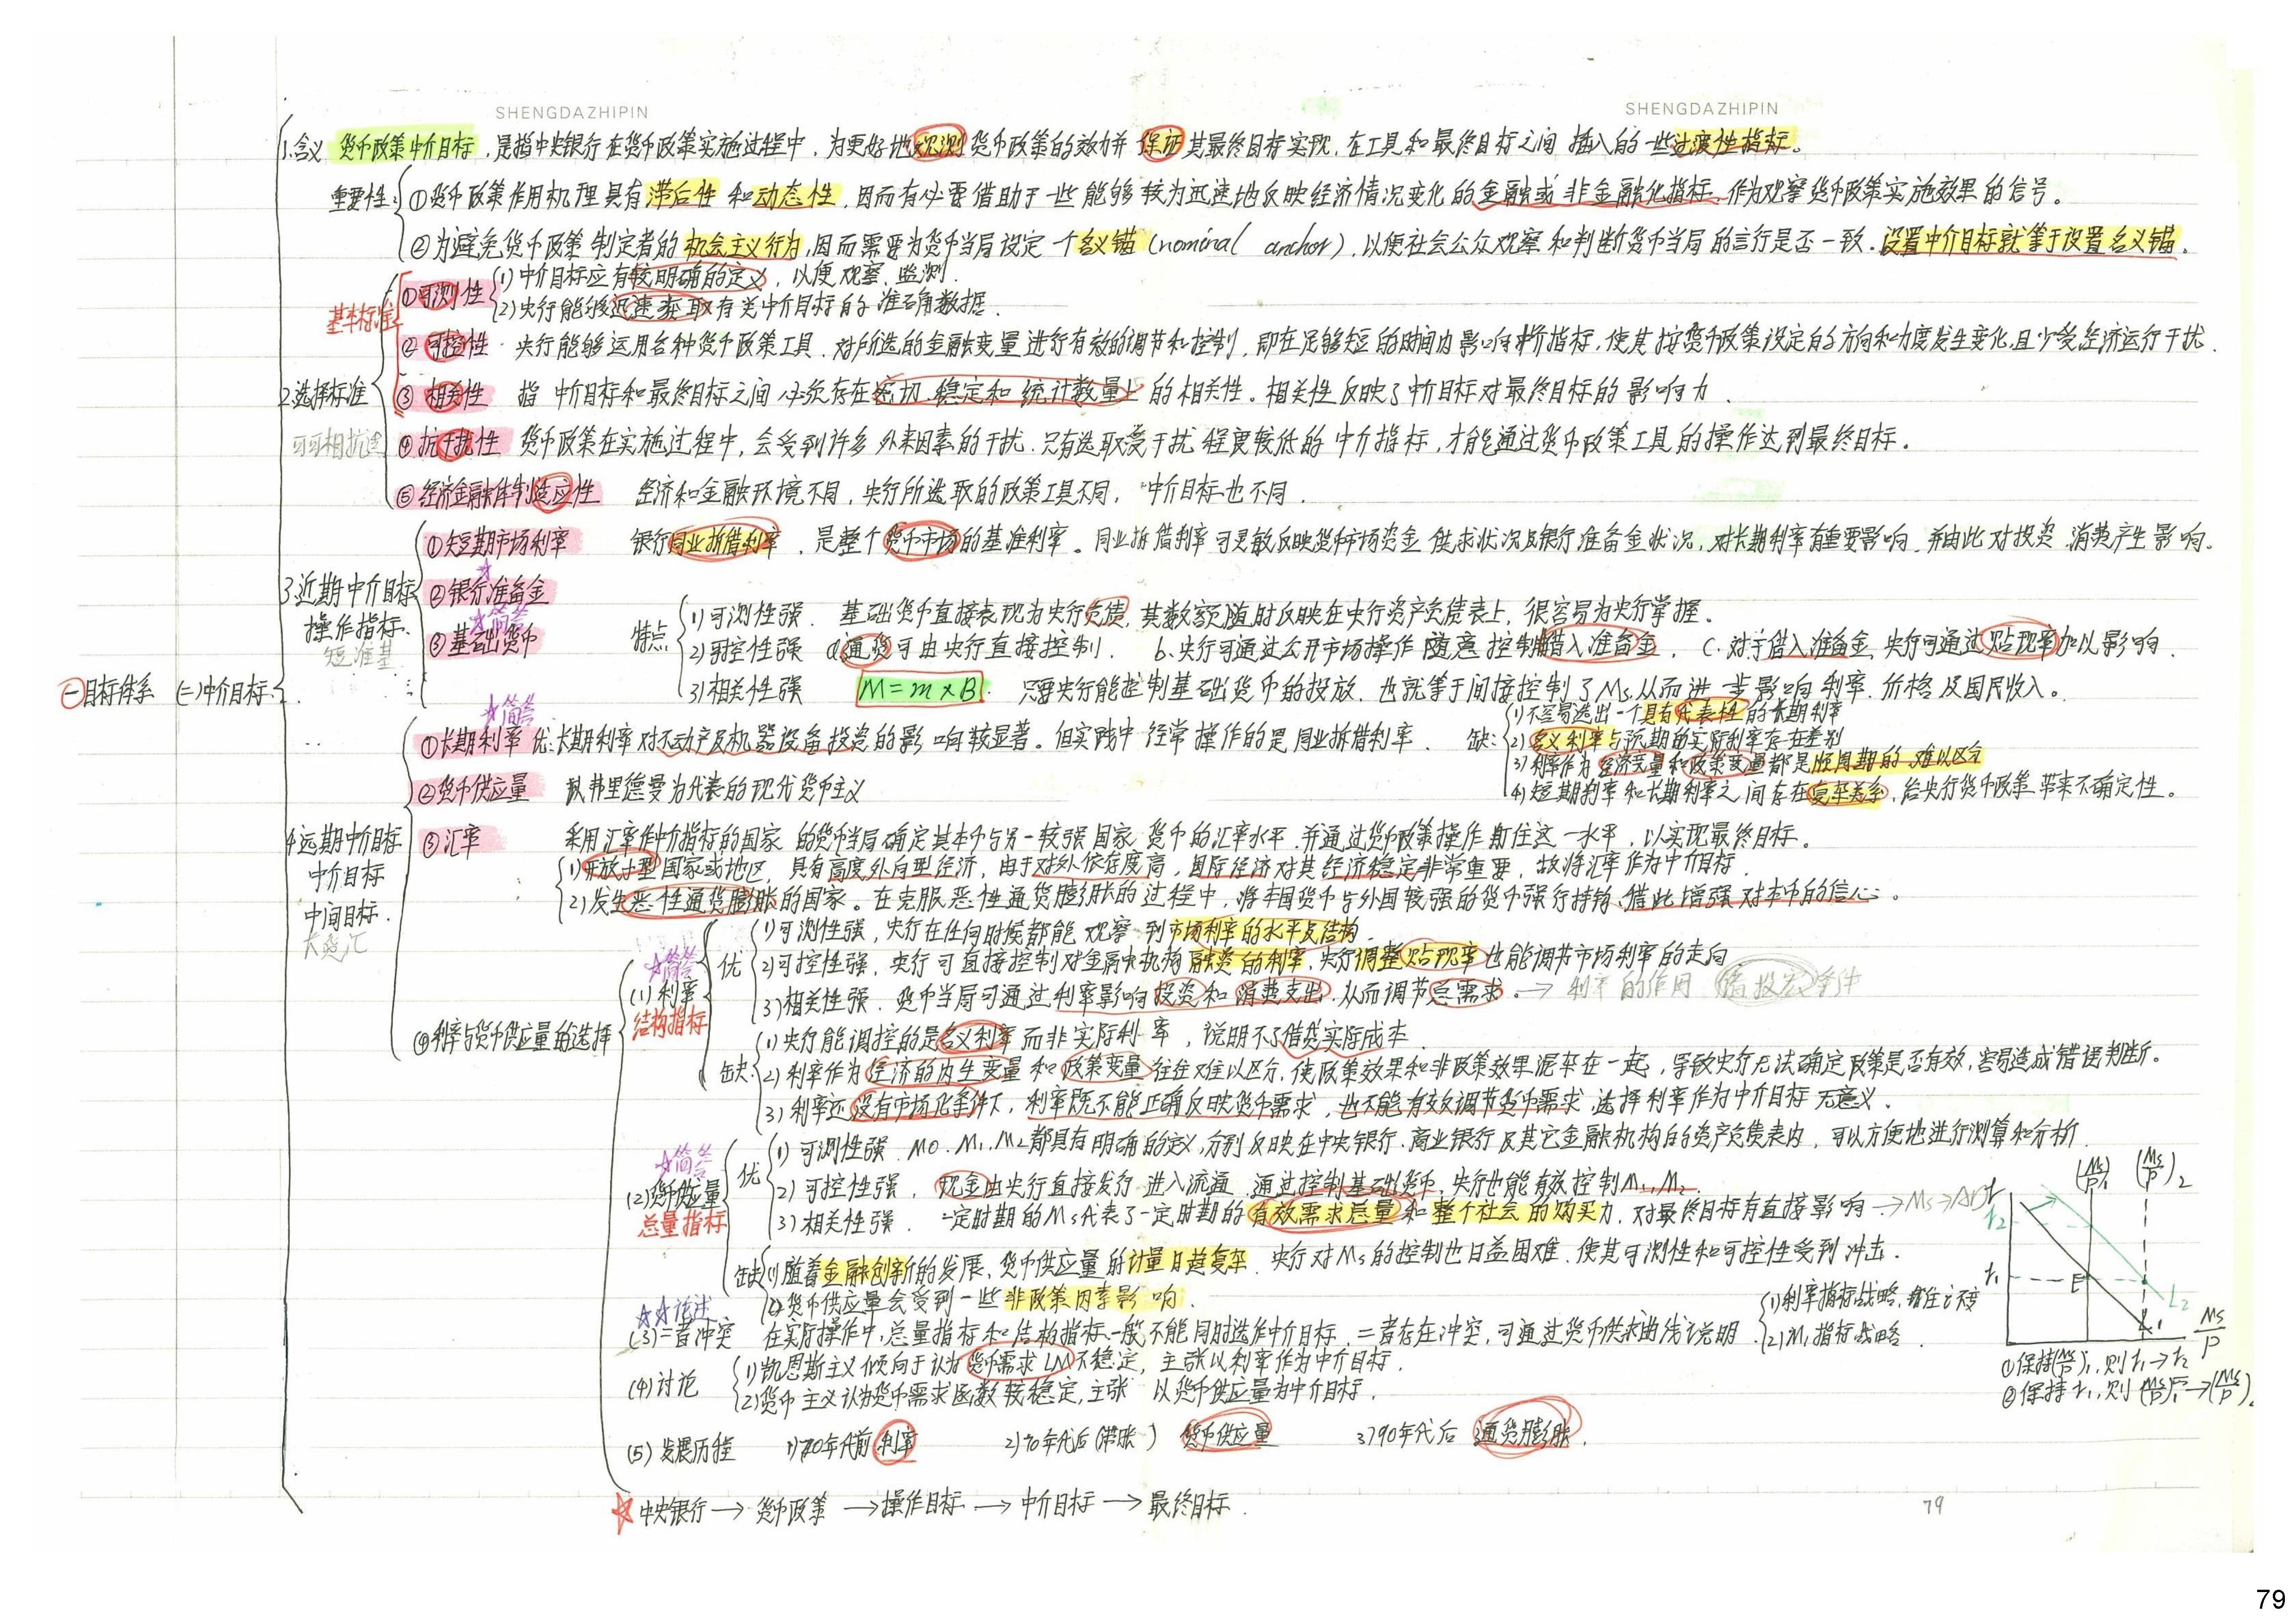 SHENGDAZHIPIN
SHENGDAZHIPIN
1.含义 货币政策中介目标，是指中央银行在货币政策实施过程中，为更好地观测货币政策的效力并保证其最终目标实现，在工具和最终目标之间插入的一些过渡性指标。
重要性：①货币政策作用机理具有滞后性和动态性，因而有必要借助于一些能够较为迅速地反映经济情况变化的金融或非金融化指标，作为观察货币政策实施效果的信号。
②为避免货币政策制定者的机会主义行为，因而需要为货币当局设定一个名义锚(nominal anchor)，以便社会公众观察和判断货币当局的言行是否一致。设置中介目标就等于设置名义锚。
2.选择标准
可可相抗适
基本标准
①可测性 (1)中介目标应有较明确的定义，以便观察、监测.
(2)央行能够迅速获取有关中介目标的准确数据.
②可控性 央行能够运用各种货币政策工具，对所选的金融变量进行有效的调节和控制，即在足够短的时间内影响中介指标，使其按货币政策设定的方向和力度发生变化，且少受经济运行干扰.
③相关性 指中介目标和最终目标之间必须存在密切、稳定和统计数量上的相关性。相关性反映了中介目标对最终目标的影响力.
④抗干扰性 货币政策在实施过程中，会受到许多外来因素的干扰.只有选取受干扰程度较低的中介指标，才能通过货币政策工具的操作达到最终目标。
⑤经济金融体制适应性 经济和金融环境不同，央行所选取的政策工具不同，中介目标也不同.
3.近期中介目标
操作指标.
短准基
①短期市场利率 银行同业拆借利率，是整个货币市场的基准利率。同业拆借利率可灵敏反映货币市场资金供求状况及银行准备金状况，对长期利率有重要影响，并由此对投资、消费产生影响.
☆
②银行准备金
☆简答
③基础货币 特点
1)可测性强. 基础货币直接表现为央行负债，其数额随时反映在央行资产负债表上，很容易为央行掌握。
2)可控性强 a.通货可由央行直接控制. b.央行可通过公开市场操作随意控制非借入准备金. c.对于借入准备金，央行可通过贴现率加以影响.
3)相关性强 M=m×B. 只要央行能控制基础货币的投放，也就等于间接控制了Ms.从而进一步影响利率、价格及国民收入。
㊀目标体系 (二)中介目标
4.远期中介目标
中介目标
中间目标.
长货汇
☆简答
①长期利率 优:长期利率对不动产及机器设备投资的影响较显著。但实践中经常操作的是同业拆借利率.
缺:1)不容易选出一个具有代表性的长期利率
2)名义利率与预期的实际利率存在差别
3)利率作为经济变量和政策变量都是顺周期的，难以区分
4)短期利率和长期利率之间存在复杂关系，给央行货币政策带来不确定性。
②货币供应量 以弗里德曼为代表的现代货币主义
③汇率 采用汇率作中介指标的国家的货币当局确定其本币与另一较强国家货币的汇率水平，并通过货币政策操作盯住这一水平，以实现最终目标。
1)开放小型国家或地区，具有高度外向型经济，由于对外依存度高，国际经济对其经济稳定非常重要，故将汇率作为中介目标.
2)发生恶性通货膨胀的国家。在克服恶性通货膨胀的过程中，将本国货币与外国较强的货币强行挂钩，借此增强对本币的信心。
④利率与货币供应量的选择
☆简答
(1)利率
结构指标
优
1)可测性强，央行在任何时候都能观察到市场利率的水平及结构
2)可控性强，央行可直接控制对金融机构融资的利率，央行调整贴现率也能调节市场利率的走向
3)相关性强. 货币当局可通过利率影响投资和消费支出，从而调节总需求. → 利率的作用 储投宏 条件
缺:
1)央行能调控的是名义利率而非实际利率，说明不了借贷实际成本.
2)利率作为经济的内生变量和政策变量往往难以区分，使政策效果和非政策效果混杂在一起，导致央行无法确定政策是否有效，容易造成错误判断。
3)利率还没有市场化条件下，利率既不能正确反映货币需求，也不能有效调节货币需求.选择利率作为中介目标无意义.
☆简答
(2)货币供应量
总量指标
优
1)可测性强. M0、M1、M2都具有明确的定义，分别反映在中央银行、商业银行及其它金融机构的资产负债表内，可以方便地进行测算和分析.
2)可控性强，现金由央行直接发行，进入流通.通过控制基础货币，央行也能有效控制M1、M2.
3)相关性强. 一定时期的Ms代表了一定时期的有效需求总量和整个社会的购买力，对最终目标有直接影响→Ms→AD
缺:1)随着金融创新的发展，货币供应量的计量日趋复杂，央行对Ms的控制也日益困难，使其可测性和可控性受到冲击.
2)货币供应量会受到一些非政策因素影响.
☆☆论述
(3)二者冲突 在实际操作中，总量指标和结构指标一般不能同时选作中介目标，二者存在冲突，可通过货币供求曲线说明.
1)利率指标战略，盯住i不变
2)M1指标战略.
(4)讨论 1)凯恩斯主义倾向于认为货币需求LM不稳定，主张以利率作为中介目标.
2)货币主义认为货币需求函数较稳定，主张以货币供应量为中介目标.
(5)发展历程 1)70年代前 利率 2)70年代后(滞胀) 货币供应量 3)90年代后 通货膨胀.
r
(Ms/P)1
(Ms/P)2
r2
r1
E
L2
L1
Ms/P
①保持(Ms/P)1,则r1→r2
②保持r1,则(Ms/P)1→(Ms/P)2
☆中央银行→货币政策→操作目标→中介目标→最终目标.
79
79